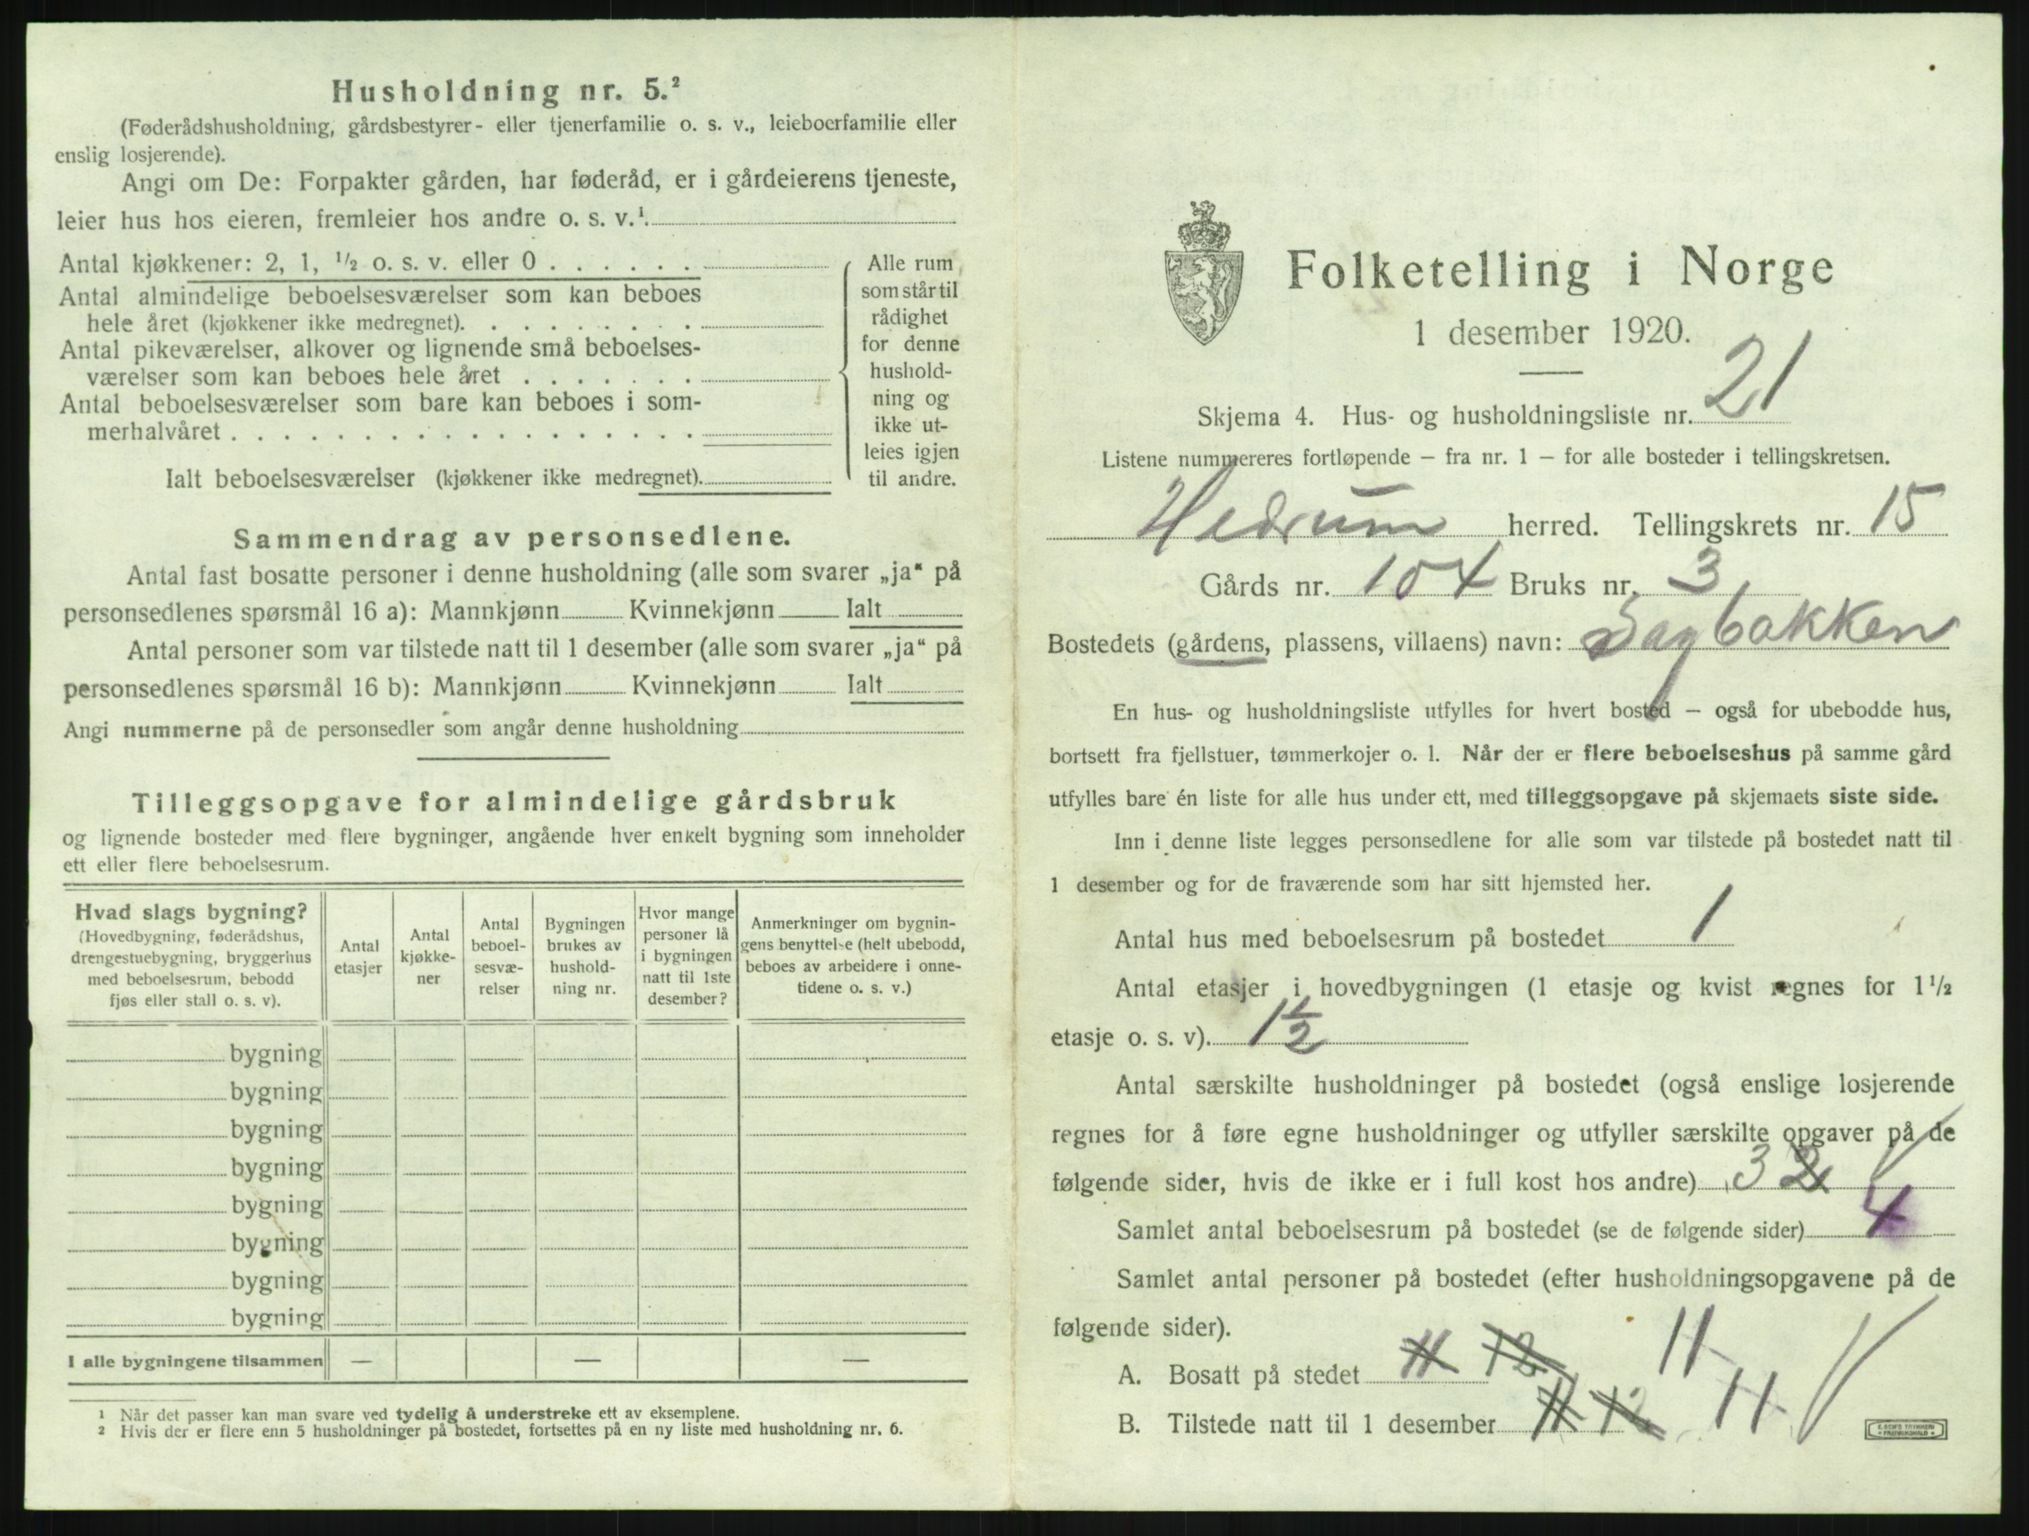 Husholdning nr. 5.²
(Føderådshusholdning, gårdsbestyrer- eller tjenerfamilie o. s. v., leieboerfamilie eller
enslig losjerende).
Angi om De: Forpakter gården, har føderåd, er i gårdeierens tjeneste,
leier hus hos eieren, fremleier hos andre o. s. v.¹.
Antal kjøkkener: 2, 1, ½ o. s. v. eller 0 . . . . . .
Antal almindelige beboelsesværelser som kan beboes
hele året (kjøkkener ikke medregnet). . . . . . . . .
Antal pikeværelser, alkover og lignende små beboelses-
værelser som kan beboes hele året . . . . . . .
Antal beboelsesværelser som bare kan beboes i som-
merhalvåret . . . . . . . . . . . . . . . . . .
Ialt beboelsesværelser (kjøkkener ikke medregnet).
Alle rum
som står til
rådighet
for denne
hushold-
ning og
ikke ut-
leies igjen
til andre.
Sammendrag av personsedlene.
Antal fast bosatte personer i denne husholdning (alle som svarer „ja“ på
personsedlenes spørsmål 16 a): Mannkjønn Kvinnekjønn Ialt
Antal personer som var tilstede natt til 1 desember (alle som svarer „ja“ på
personsedlenes spørsmål 16 b): Mannkjønn Kvinnekjønn Ialt
Angi nummerne på de personsedler som angår denne husholdning
Tilleggsopgave for almindelige gårdsbruk
og lignende bosteder med flere bygninger, angående hver enkelt bygning som inneholder
ett eller flere beboelsesrum.
Hvad slags bygning?
(Hovedbygning, føderådshus,
drengestuebygning, bryggerhus
med beboelsesrum, bebodd
fjøs eller stall o. s. v).
Antal
etasjer
Antal
kjøkke-
ner
Antal
beboel-
sesvæ-
relser
Bygningen
brukes av
hushold-
ning nr.
Hvor mange
personer lå
i bygningen
natt til 1ste
desember?
Anmerkninger om bygnin-
gens benyttelse (helt ubebodd,
beboes av arbeidere i onne-
tidene o. s. v.)
bygning
bygning
bygning
bygning
bygning
bygning
bygning
bygning
I alle bygningene tilsammen — — —
¹ Når det passer kan man svare ved tydelig å understreke ett av eksemplene.
² Hvis der er flere enn 5 husholdninger på bostedet, fortsettes på en ny liste med husholdning nr. 6.
Folketelling i Norge
1 desember 1920.
Skjema 4. Hus- og husholdningsliste nr. 21
Listene nummereres fortløpende – fra nr. 1 – for alle bosteder i tellingskretsen.
Hedrum herred. Tellingskrets nr. 15
Gårds nr. 104 Bruks nr. 3
Bostedets (gårdens, plassens, villaens) navn: Sagbakken
En hus- og husholdningsliste utfylles for hvert bosted – også for ubebodde hus,
bortsett fra fjellstuer, tømmerkojer o. l. Når der er flere beboelseshus på samme gård
utfylles bare én liste for alle hus under ett, med tilleggsopgave på skjemaets siste side.
Inn i denne liste legges personsedlene for alle som var tilstede på bostedet natt til
1 desember og for de fraværende som har sitt hjemsted her.
Antal hus med beboelsesrum på bostedet 1
Antal etasjer i hovedbygningen (1 etasje og kvist regnes for 1½
etasje o. s. v). 1½
Antal særskilte husholdninger på bostedet (også enslige losjerende
regnes for å føre egne husholdninger og utfyller særskilte opgaver på de
følgende sider, hvis de ikke er i full kost hos andre) 3 2
Samlet antal beboelsesrum på bostedet (se de følgende sider) 4
Samlet antal personer på bostedet (efter husholdningsopgavene på de
følgende sider).
A. Bosatt på stedet 11 12 11
B. Tilstede natt til 1 desember 11 12 11